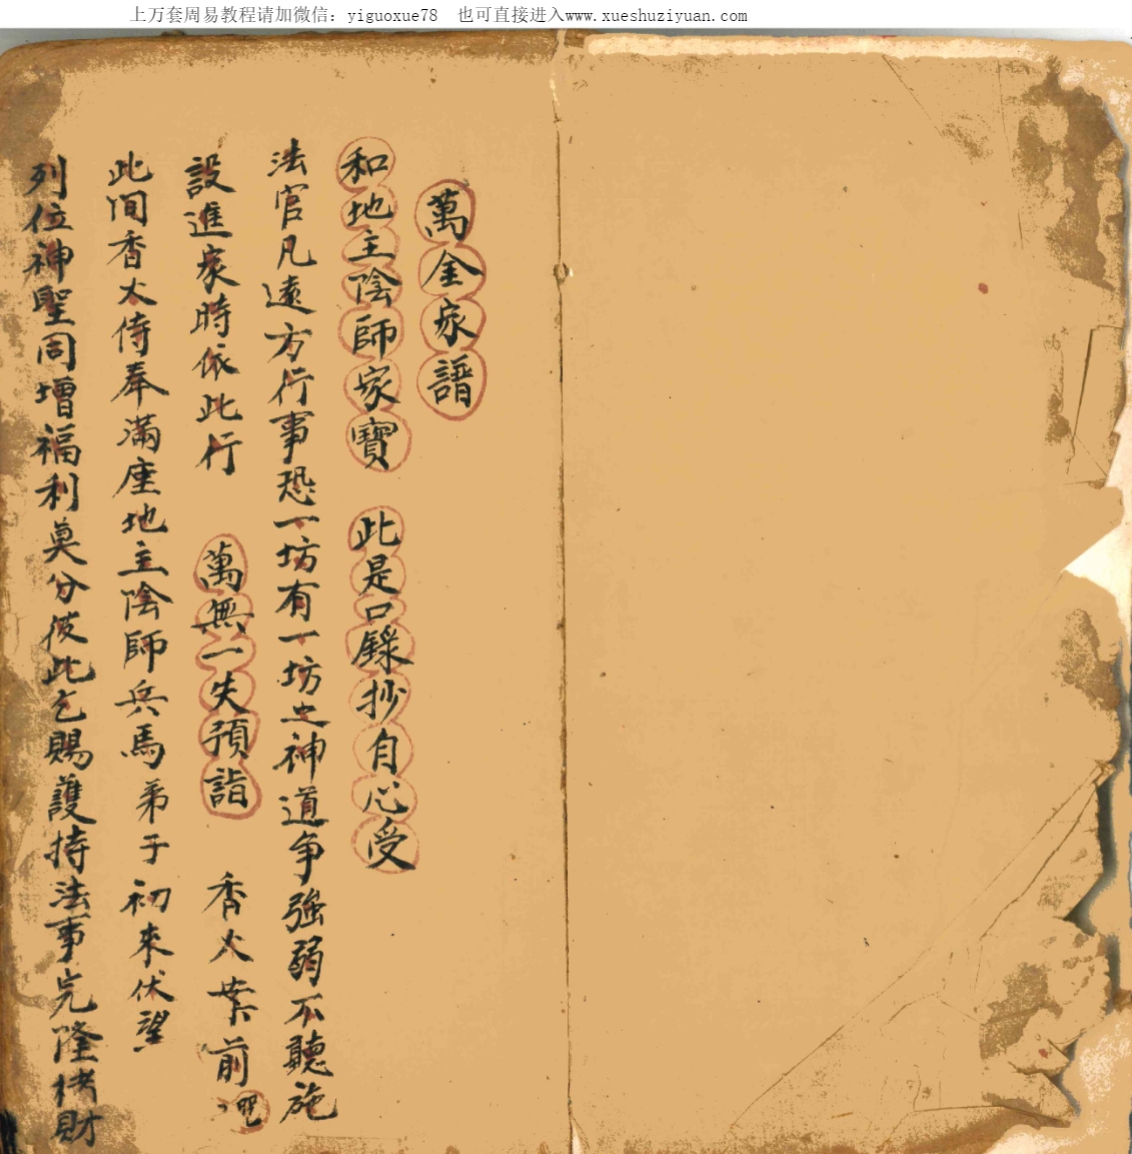 上万套周易教程请加微信：yiguoxue78　也可直接进入www.xueshuziyuan.com
萬金家譜
和地主陰師家寳　此是口錄抄自心受
法官凡遠方行事恐一坊有一坊之神道争強弱不聽施
設進家時依此行　萬無一失預詣　香火案前
此间香火侍奉滿座地主陰師兵馬弟子初來伏望
列位神聖同增福利莫分彼此乞賜護持法事完隆財